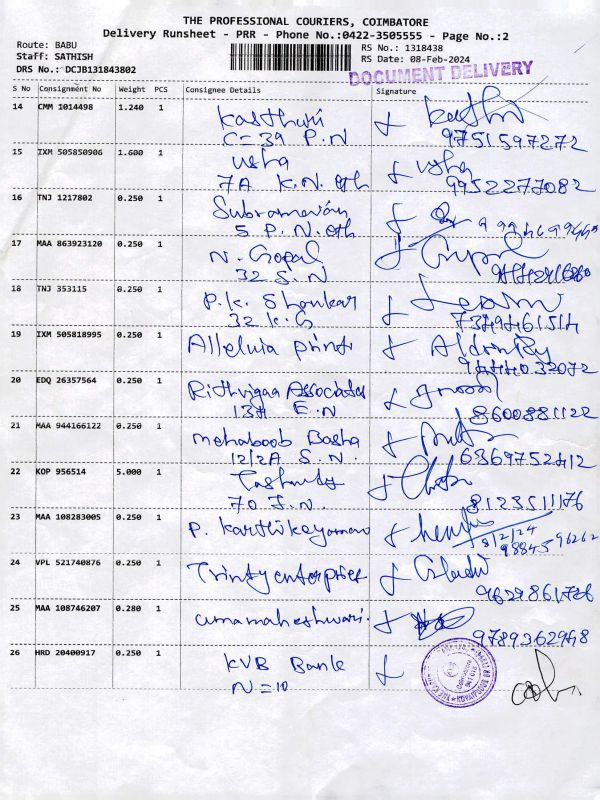 THE PROFESSIONAL COURIERS, COIMBATORE
Delivery Runsheet - PRR - Phone No.:0422-3505555 - Page No.:2
Route: BABU
Staff: SATHISH
DRS No.: DCJB131843802
RS No.: 1318438
RS Date: 08-Feb-2024
DOCUMENT DELIVERY
S No Consignment No Weight PCS Consignee Details Signature
14 CMM 1014498 1.240 1 Kasthuri
C=39 P.N 9751597272
15 IXM 505850906 1.600 1 Usha Usha
7A K.N. 9952277082
16 TNJ 1217802 0.250 1
5 P.N.
17 MAA 863923120 0.250 1 N. Gopal
32 S.N
18 TNJ 353115 0.250 1 P.K. Shankar
32 K.G
19 IXM 505818995 0.250 1 Alleluia prints
20 EDQ 26357564 0.250 1 Rithvigaa Associates
E.N 8600881122
21 MAA 944166122 0.250 1 Mehaboob Basha
12/2A S.N. 6369752412
22 KOP 956514 5.000 1
70 J.N. 8123511176
23 MAA 108283005 0.250 1 P.
8/2/24
24 VPL 521740876 0.250 1 Trinity enterprises
9629861726
25 MAA 108746207 0.280 1 umamaheshwari.
26 HRD 20400917 0.250 1 KVB Bank
N=10